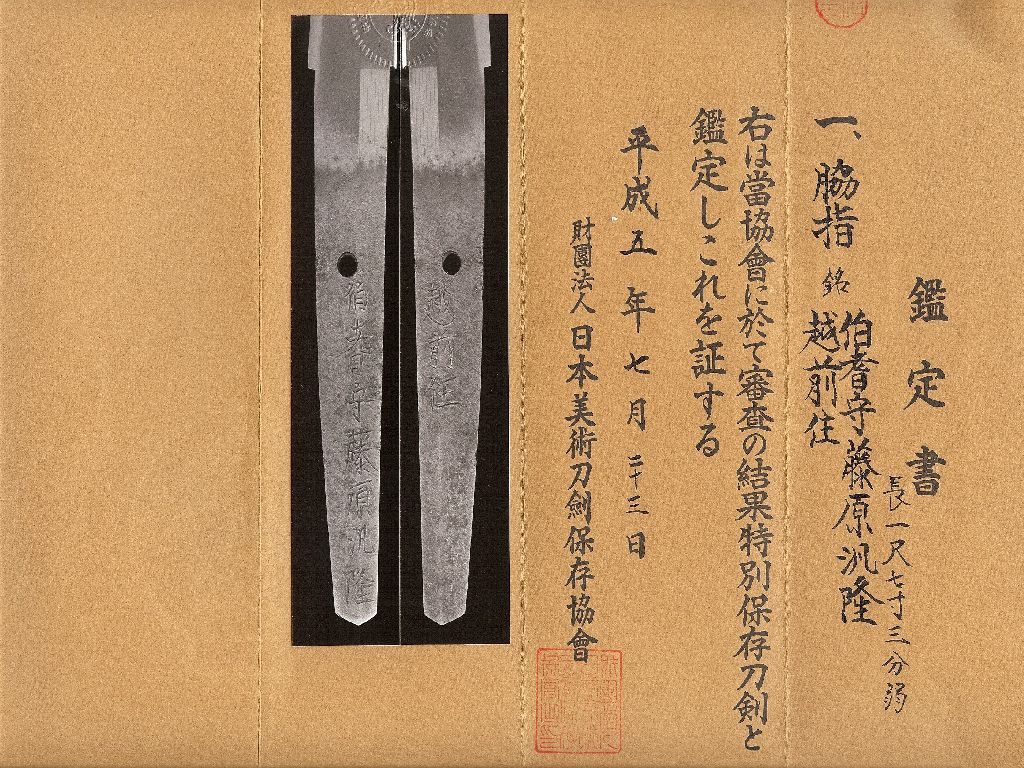 鑑定書
一、脇指 銘 伯耆守藤原汎隆
越前住
長一尺七寸三分弱
右は當協會に於て審査の結果特別保存刀剣と
鑑定しこれを証する
平成五年七月二十三日
財團法人日本美術刀劍保存協會
越前住
伯耆守藤原汎隆